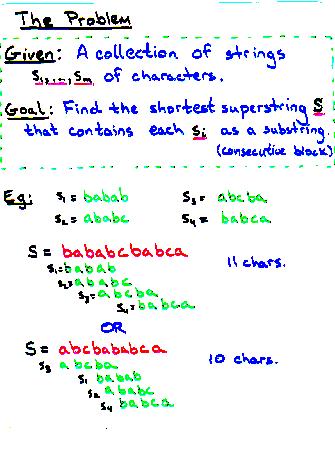 The Problem
Given: A collection of strings
S₁,...,Sₘ of characters.
Goal: Find the shortest superstring S
that contains each Sᵢ as a substring.
(consecutive block)
Eg: S₁ = babab S₃ = abcba
S₂ = ababc S₄ = babca
S = bababcbabca 11 chars.
S₁=babab
S₂=ababc
S₃=abcba
S₄=babca
OR
S = abcbababca 10 chars.
S₃ abcba
S₁ babab
S₂ ababc
S₄ babca